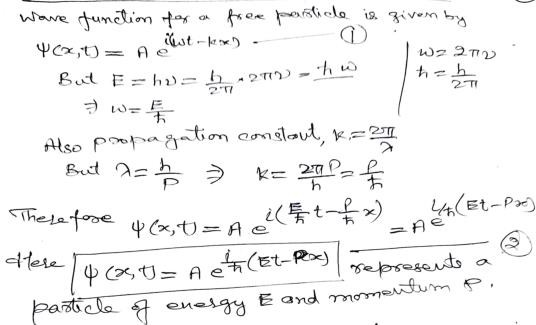 Wave function for a free particle is given by
Ψ(x,t) = A e^{i(ωt-kx)} - ①
But E = hν = h/2π · 2πν = ħω
ω = 2πν
ħ = h/2π
⇒ ω = E/ħ
Also propagation constant, k = 2π/λ
But λ = h/P ⇒ k = 2πP/h = P/ħ
Therefore Ψ(x,t) = A e^{i(E/ħ t - P/ħ x)} = A e^{i/ħ(Et-Px)} ②
Here Ψ(x,t) = A e^{i/ħ(Et-Px)} represents a
particle of energy E and momentum P.